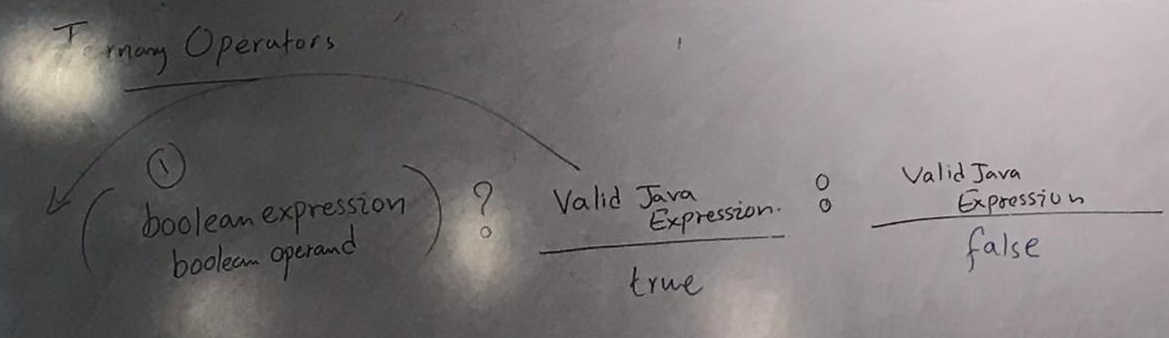 Ternary Operators
①
( boolean expression
boolean operand ) ? Valid Java
Expression. : Valid Java
Expression
true
false